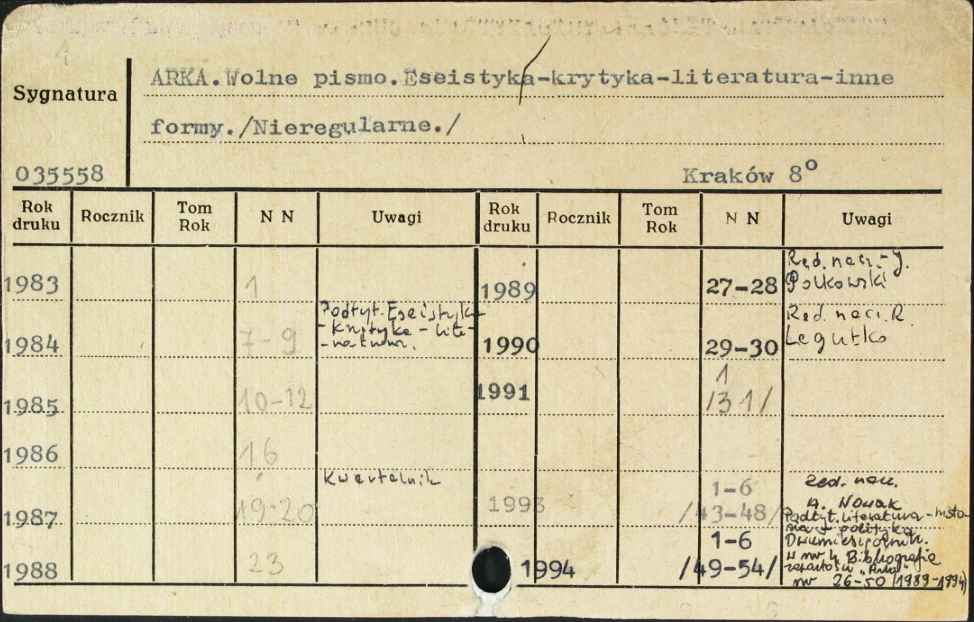 1
ARKA.Wolne pismo.Eseistyka-krytyka-literatura-inne
Sygnatura
formy./Nieregularne./
035558
Kraków 8°
Rok druku Rocznik Tom Rok N N Uwagi Rok druku Rocznik Tom Rok N N Uwagi
1983 1
1984 7-9 Podtyt. Eseistyka
- Krytyka - lite-
-ratura.
1985 10-12
1986 16
Kwartalnik
1987 19-20
1988 23
1989 27-28 Red. nacz. - J.
Polkowski
1990 29-30 Red. nacz. R.
Legutko
1991 1
/31/
1993 1-6
/43-48/
Red. nacz.
A. Nowak
Podtyt. Literatura - histo-
ria - polityka
1994 1-6
/49-54/
Dwumiesięcznik.
W nr 4 Bibliografia
zawartości "Arki"
nr 26-50 (1989-1994)